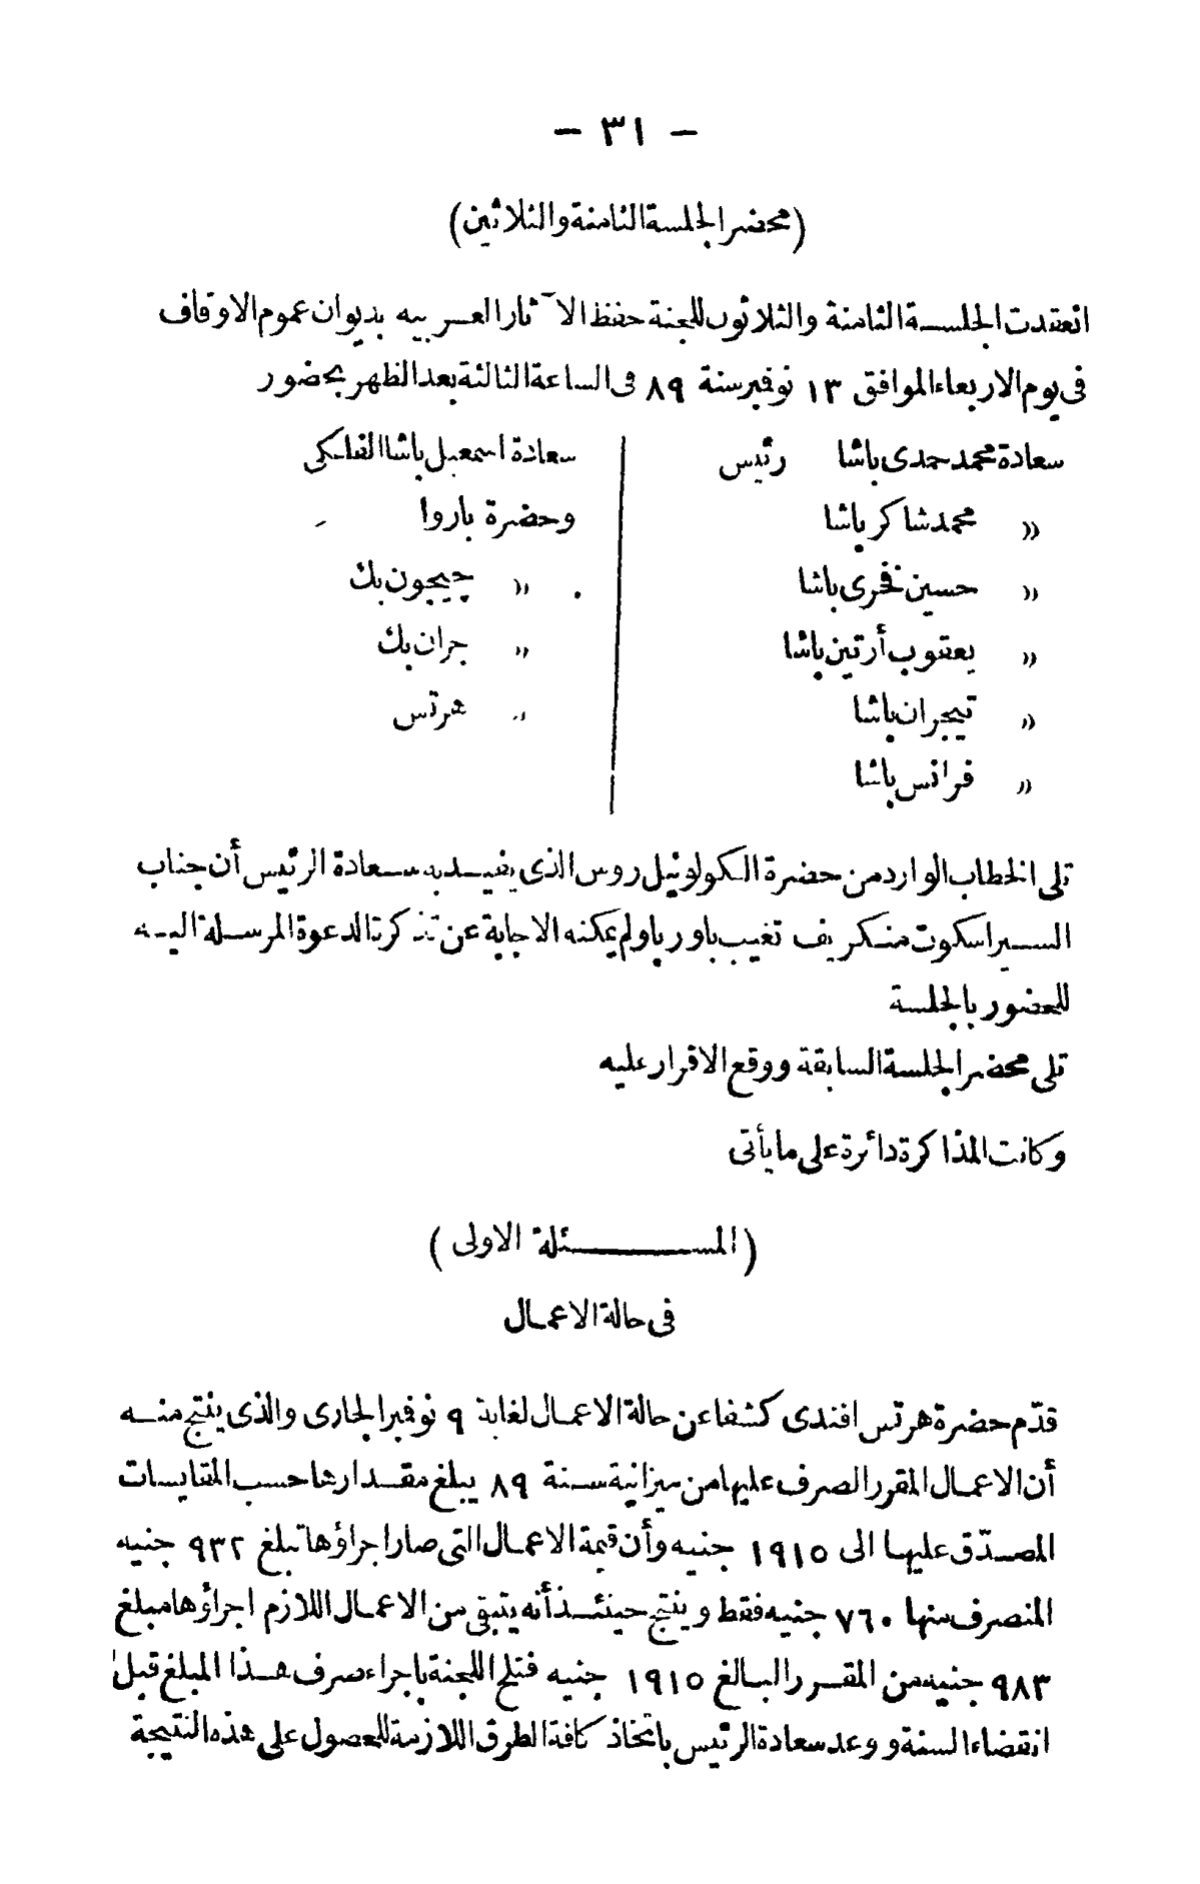 - ٣١ -
(محضر الجلسة الثامنة والثلاثين)
انعقدت الجلسة الثامنة والثلاثون للجنة حفظ الآثار العربيه بديوان عموم الاوقاف
فى يوم الاربعاء الموافق ١٣ نوفبر سنة ٨٩ فى الساعة الثالثة بعد الظهر بحضور
سعادة محمد حمدى باشا رئيس
« محمد شاكر باشا
« حسين فخرى باشا
« يعقوب أرتين باشا
« تيجران باشا
« فرانس باشا
سعادة اسمعيل باشا الفلكى
وحضرة باروا
« چيجون بك
« جران بك
« هرتس
تلى الخطاب الوارد من حضرة الكولونيل روس الذى يفيد به سعادة الرئيس أن جناب
السير اسكوت منكريف تغيب باوربا ولم يمكنه الاجابة عن تذكرة الدعوة المرسلة اليه
للحضور بالجلسة
تلى محضر الجلسة السابقة ووقع الاقرار عليه
وكانت المذاكرة دائرة على ما يأتى
(المسئلة الاولى)
فى حالة الاعمال
قدّم حضرة هرتس افندى كشفا عن حالة الاعمال لغاية ٩ نوفبر الجارى والذى ينتج منه
أن الاعمال المقرر الصرف عليها من ميزانية سنة ٨٩ يبلغ مقدارها حسب المقايسات
المصدّق عليها الى ١٩١٥ جنيه وأن قيمة الاعمال التى صار اجراؤها تبلغ ٩٣٢ جنيه
المنصرف منها ٧٦٠ جنيه فقط وينتج حينئذ أنه يتبقى من الاعمال اللازم اجراؤها مبلغ
٩٨٣ جنيه من المقرر البالغ ١٩١٥ جنيه فتلح اللجنة باجراء صرف هذا المبلغ قبل
انقضاء السنة ووعد سعادة الرئيس باتخاذ كافة الطرق اللازمة للحصول على هذه النتيجة